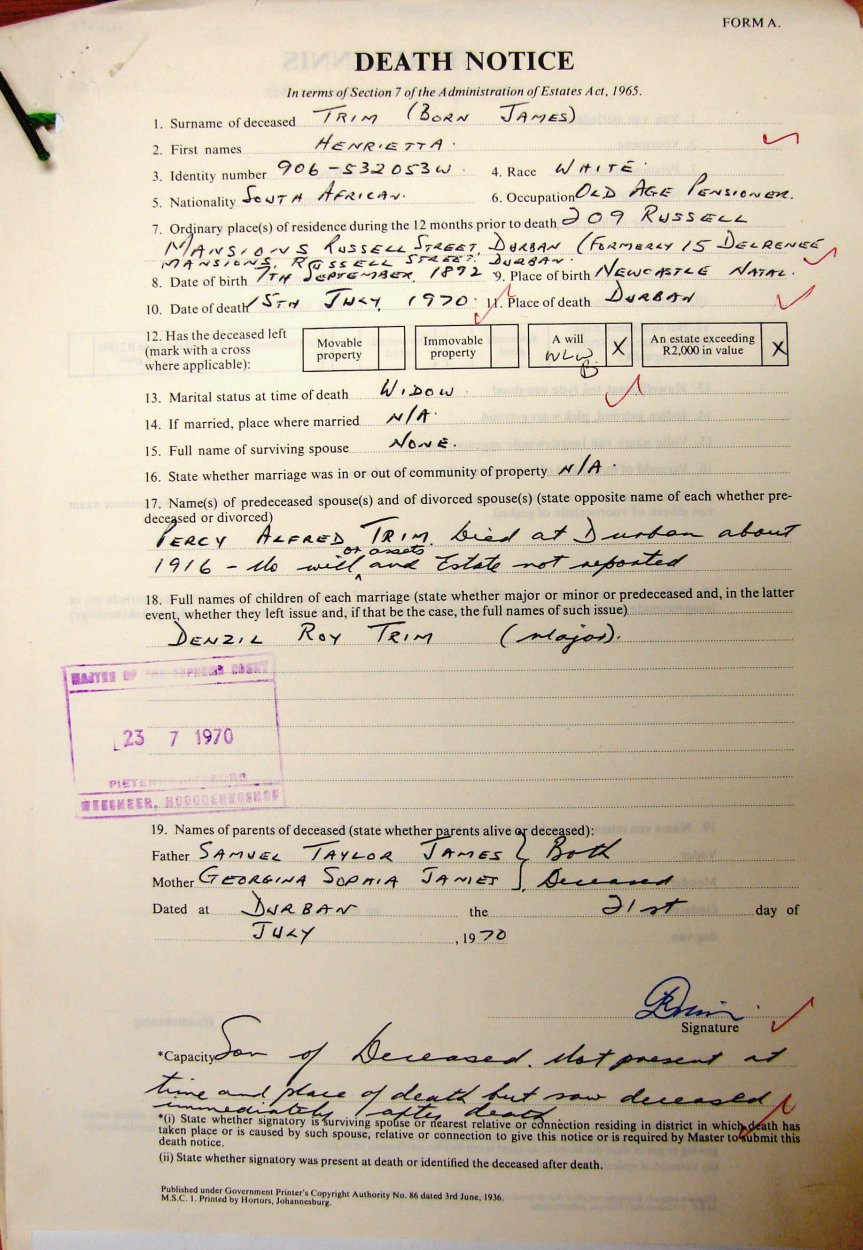 FORM A.
DEATH NOTICE
In terms of Section 7 of the Administration of Estates Act, 1965.
1. Surname of deceased TRIM (BORN JAMES)
2. First names HENRIETTA.
3. Identity number 906-532053W. 4. Race WHITE.
5. Nationality SOUTH AFRICAN. 6. Occupation OLD AGE PENSIONER.
7. Ordinary place(s) of residence during the 12 months prior to death 209 RUSSELL
MANSIONS RUSSELL STREET, DURBAN (FORMERLY 15 DELRENEE
MANSIONS, RUSSELL STREET, DURBAN.
8. Date of birth 7TH SEPTEMBER, 1892 9. Place of birth NEWCASTLE NATAL.
10. Date of death 15TH JULY, 1970. 11. Place of death DURBAN
12. Has the deceased left (mark with a cross where applicable):
Movable property
Immovable property
A will X
An estate exceeding R2,000 in value X
13. Marital status at time of death WIDOW.
14. If married, place where married N/A.
15. Full name of surviving spouse NONE.
16. State whether marriage was in or out of community of property N/A.
17. Name(s) of predeceased spouse(s) and of divorced spouse(s) (state opposite name of each whether pre-
deceased or divorced)
PERCY ALFRED TRIM. Died at Durban about
1916 - No will or assets and Estate not reported
18. Full names of children of each marriage (state whether major or minor or predeceased and, in the latter
event, whether they left issue and, if that be the case, the full names of such issue)
DENZIL ROY TRIM (Major).
MASTER OF THE SUPREME COURT
23 7 1970
19. Names of parents of deceased (state whether parents alive or deceased):
Father SAMUEL TAYLOR JAMES } Both
Mother GEORGINA SOPHIA JAMES } Deceased
Dated at DURBAN the 21st day of
JULY, 1970
Signature
*Capacity Son of Deceased. Not present at
time and place of death but saw deceased
immediately after death
*(i) State whether signatory is surviving spouse or nearest relative or connection residing in district in which death has
taken place or is caused by such spouse, relative or connection to give this notice or is required by Master to submit this
death notice.
(ii) State whether signatory was present at death or identified the deceased after death.
Published under Government Printer's Copyright Authority No. 86 dated 3rd June, 1936.
M.S.C. 1. Printed by Hortors, Johannesburg.